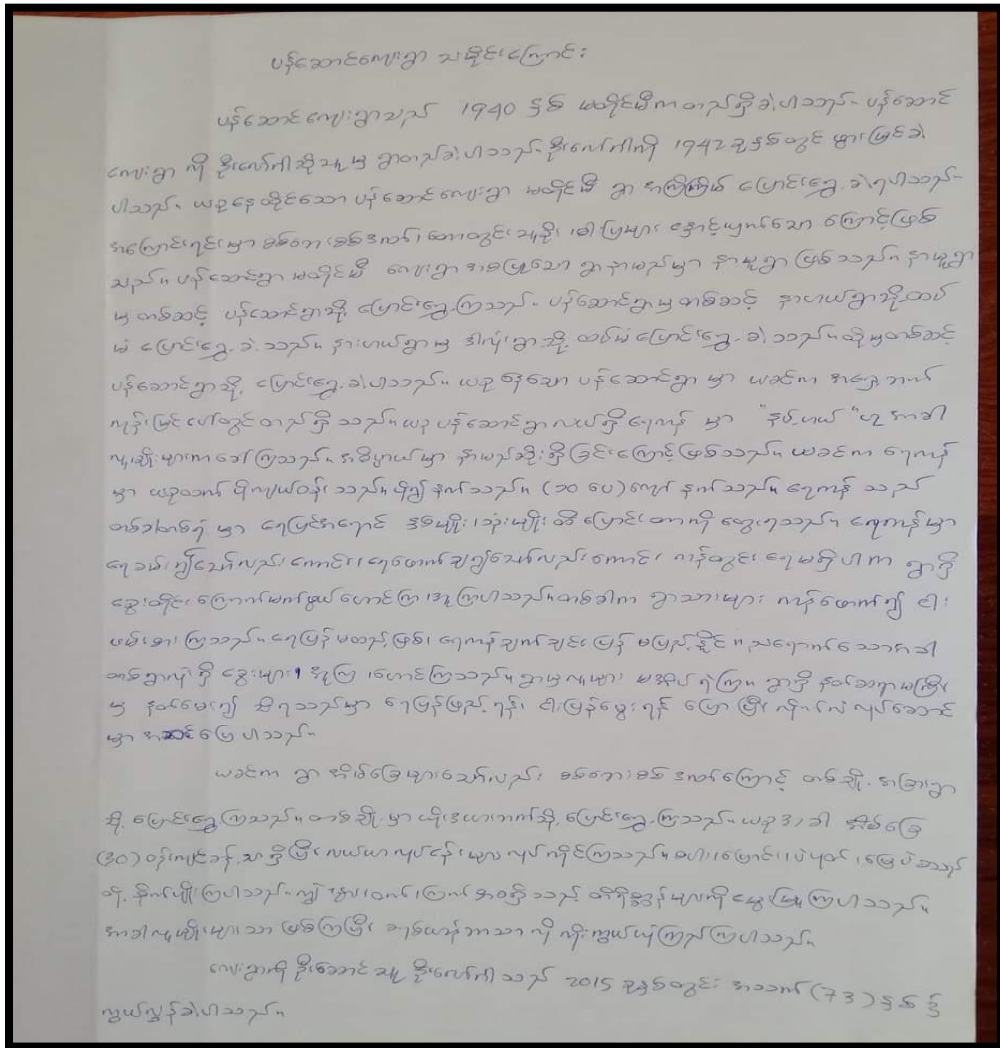 ပန်ဆောင်ကျေးရွာ သမိုင်းကြောင်း
ပန်ဆောင်ကျေးရွာသည် 1940 ခုနှစ် မတိုင်မီကတည်ရှိခဲ့ပါသည်။ ပန်ဆောင်
ကျေးရွာ ကို ဦးလော်ဂါဆိုသူမှ ရွာတည်ခဲ့ပါသည်။ ဦးလော်ဂါကို 1942 ခုနှစ်တွင် မွေးမြင်ခဲ့
ပါသည်။ ယခုနေထိုင်သော ပန်ဆောင်ကျေးရွာ မတိုင်မီ ရွာ အကြိမ်ကြိမ် ပြောင်းရွှေ့ ခဲ့ရပါသည်။
အကြောင်းရင်းမှာ စစ်ဘေးစစ်ဒဏ်၊ တောတွင်းသူခိုး၊ ဓါးပြများ နှောင့်ယှက်သော ကြောင့်ဖြစ်
သည်။ ပန်ဆောင်ရွာ မတိုင်မီ ကျေးရွာ အစပြုသော ရွာနာမည်မှာ နာယူရွာ ဖြစ်သည်။ နာယူရွာ
မှ တစ်ဆင့် ပန်ဆောင်ရွာသို့ ပြောင်းရွှေ့ကြသည်။ ပန်ဆောင်ရွာမှ တစ်ဆင့် နားဟယ်ရွာသို့ ထပ်
မံ ပြောင်းရွှေ့ ခဲ့သည်။ နားဟယ်ရွာမှ ဒါလုံးရွာ သို့ ထပ်မံ ပြောင်းရွှေ့ ခဲ့သည်။ ထိုမှတစ်ဆင့်
ပန်ဆောင်ရွာသို့ ပြောင်းရွှေ့ခဲ့ပါသည်။ ယခု နေသော ပန်ဆောင်ရွာ မှာ ယခင်က အရှေ့ဘက်
ကုန်းမြင့်ပေါ်တွင် တည်ရှိ သည်။ ယခု ပန်ဆောင်ရွာလယ်ရှိ ရေကန် မှာ "နမ့်ဟယ်" ဟု အာခါ
လူမျိုးများက ခေါ်ကြသည်။ အဓိပ္ပာယ်မှာ နာမည်ဆိုးရှိခြင်းကြောင့်ဖြစ်သည်။ ယခင်က ရေကန်
မှာ ယခုထက် ပိုကျယ်ဝန်းသည်။ ပို၍ နက်သည်။ (၁၀ ပေ)ကျော် နက်သည်။ ရေကန် သည်
တစ်ခါတစ်ရံ မှာ ရေပြင်အရောင် နှစ်မျိုး၊ သုံးမျိုး ထိ ပြောင်းတာကို တွေ့ရသည်။ ရေကန်မှာ
ရေခမ်း၍သော်လည်းကောင်း၊ ရေဖောက်ချ၍သော်လည်းကောင်း ကန်တွင်း ရေမရှိပါက ရွာရှိ
ခွေးတိုင်း ကြောက်မက်ဖွယ် ဟောင်ကြ၊ အူကြပါသည်။ တစ်ခါက ရွာသားများ ကန်ဖောက်၍ ငါး
ဖမ်းစားကြသည်။ ရေပြန်မထည့်ဖြစ်၊ ရေကန်ချက်ချင်းပြန် မပြည့်နိုင်။ ညရောက်သောအခါ
တစ်ရွာလုံးရှိ ခွေးများ အူကြ၊ ဟောင်ကြသည်။ ရွာမှလူများ မအိပ်ရဲကြ။ ရွာရှိ နတ်ဆရာမကြီး
မှ နတ်မေး၍ သိရသည်မှာ ရေပြန်ဖြည့်ရန်၊ ငါးပြန်မွေးရန် ပြောပြီး လိုက်လံလုပ်ဆောင်
မှာ အဆင်ပြေပါသည်။
ယခင်က ရွာ အိမ်ခြေများသော်လည်း စစ်ဘေးစစ်ဒဏ်ကြောင့် တစ်ချို့ အခြားရွာ
သို့ ပြောင်းရွှေ့ကြသည်။ တစ်ချို့ မှာ ယိုးဒယားဘက်သို့ ပြောင်းရွှေ့ကြသည်။ ယခုအခါ အိမ်ခြေ
(၃၀) ဝန်းကျင်ခန့်သာရှိပြီး လယ်ယာလုပ်ငန်းများ လုပ်ကိုင်ကြသည်။ စပါး၊ ပြောင်း၊ ပဲပုတ်၊ မြေပဲ စသည်
တို့ စိုက်ပျိုးကြပါသည်။ ကျွဲ၊ နွား၊ ဝက်၊ ကြက် အစရှိသည့် တိရိစ္ဆာန်များကို မွေးမြူကြပါသည်။
အာခါလူမျိုးများသာ ဖြစ်ကြပြီး ခရစ်ယာန်ဘာသာ ကို ကိုးကွယ်ယုံကြည်ကြပါသည်။
ကျေးရွာကို ဦးဆောင်သူ ဦးလော်ဂါ သည် 2015 ခုနှစ်တွင် အသက် (73) နှစ် ၌
ကွယ်လွန်ခဲ့ပါသည်။